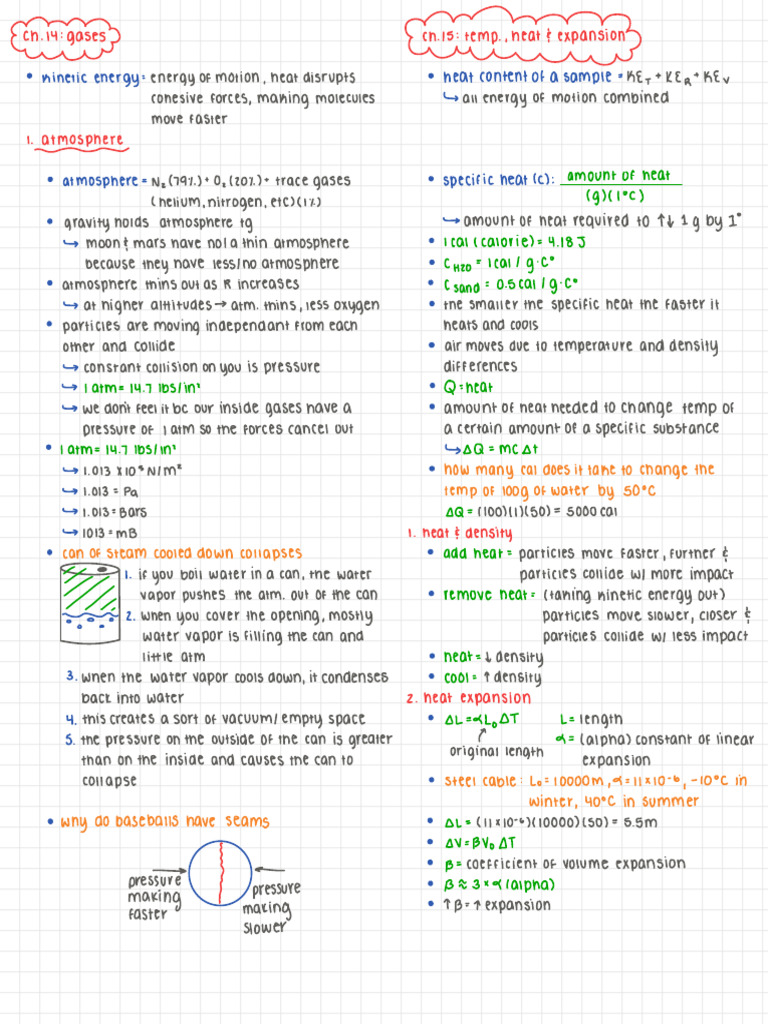 ch. 14: gases
• kinetic energy = energy of motion, heat disrupts
cohesive forces, making molecules
move faster
1. atmosphere
• atmosphere = N₂(79%) + O₂(20%) + trace gases
(helium, nitrogen, etc)(1%)
• gravity holds atmosphere tg
↳ moon & mars have no/a thin atmosphere
because they have less/no atmosphere
• atmosphere thins out as R increases
↳ at higher altitudes → atm. thins, less oxygen
• particles are moving independant from each
other and collide
↳ constant collision on you is pressure
↳ 1 atm = 14.7 lbs/in²
↳ we don't feel it bc our inside gases have a
pressure of 1 atm so the forces cancel out
• 1 atm = 14.7 lbs/in²
↳ 1.013 x 10⁵ N/m²
↳ 1.013 = Pa
↳ 1.013 = Bars
↳ 1013 = mB
• can of steam cooled down collapses
1. if you boil water in a can, the water
vapor pushes the atm. out of the can
2. when you cover the opening, mostly
water vapor is filling the can and
little atm
3. when the water vapor cools down, it condenses
back into water
4. this creates a sort of vacuum/empty space
5. the pressure on the outside of the can is greater
than on the inside and causes the can to
collapse
• why do baseballs have seams
pressure
making
faster
pressure
making
slower
ch. 15: temp., heat & expansion
• heat content of a sample = KE_T + KE_R + KE_V
↳ all energy of motion combined
• specific heat (c): amount of heat
(g)(1°C)
↳ amount of heat required to ↑↓ 1 g by 1°
• 1 cal (calorie) = 4.18 J
• C_H2O = 1 cal / g·C°
• C_sand = 0.5 cal / g·C°
• the smaller the specific heat the faster it
heats and cools
• air moves due to temperature and density
differences
• Q = heat
• amount of heat needed to change temp of
a certain amount of a specific substance
↳ ΔQ = mcΔt
• how many cal does it take to change the
temp of 100g of water by 50°C
ΔQ = (100)(1)(50) = 5000 cal
1. heat & density
• add heat = particles move faster, further &
particles collide w/ more impact
• remove heat = (taking kinetic energy out)
particles move slower, closer &
particles collide w/ less impact
• heat = ↓ density
• cool = ↑ density
2. heat expansion
• ΔL = αL₀ΔT L = length
original length
α = (alpha) constant of linear
expansion
• steel cable: L₀ = 10000m, α = 11 x 10⁻⁶, -10°C in
winter, 40°C in summer
• ΔL = (11 x 10⁻⁶)(10000)(50) = 5.5m
• ΔV = βV₀ΔT
• β = coefficient of volume expansion
• β ≈ 3 x α (alpha)
• ↑ β = ↑ expansion